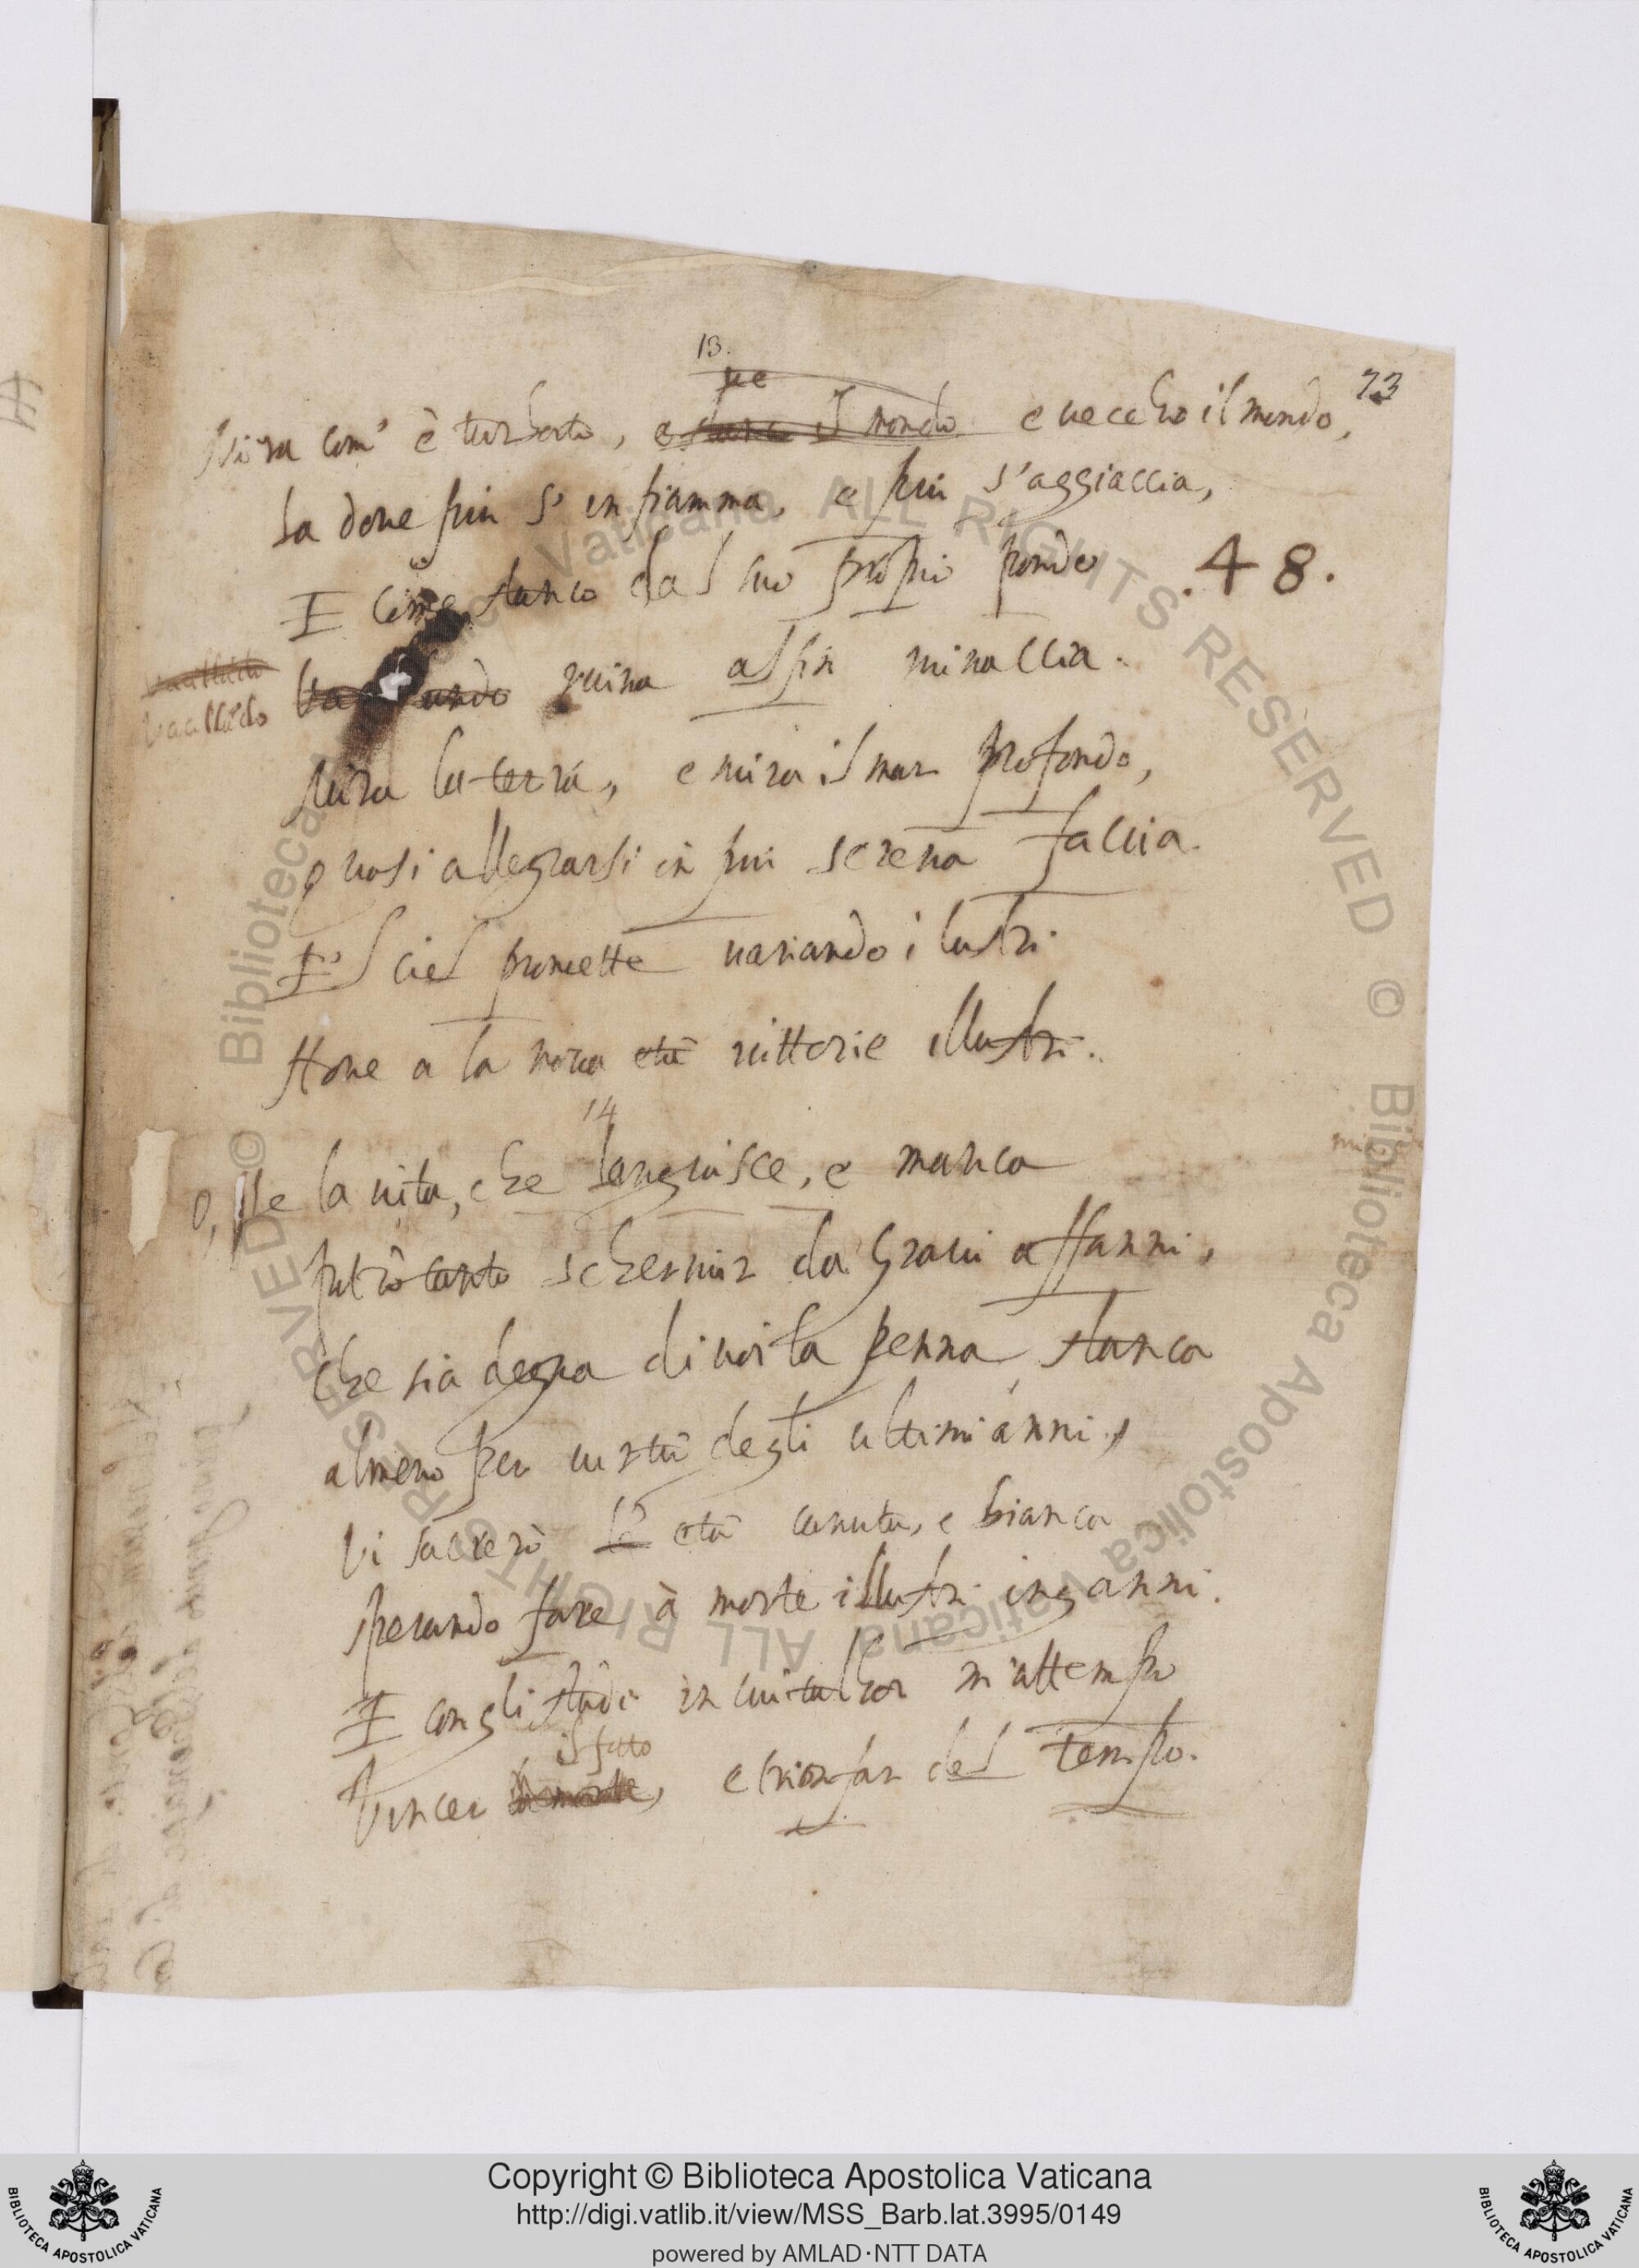 13.
73
Mira com' è turbato, e stanco il mondo e vecchio il mondo,
La doue piu s'infiamma, e piu s'aggiaccia,
E come stanco dal suo proprio pondo
.48.
Vacillādo ruina al fin minaccia.
Mira la terra, e mira il mar profondo,
quasi allegrarsi in piu serena faccia.
E'l ciel promette uariando i lustri
a la noua età uittorie illustri.
14
O, se la uita, che languisce, e manca
potrò tanto schermir da graui affanni,
che sia degna di uoi la penna stanca
almeno per uirtù degli ultimi anni,
Vi sacrerò l'età canuta, e bianca
sperando fare à morte illustri inganni.
E con gli studi in cui talhor m'attempo
il fato
Vincer la morte, e trionfar del tempo.
Copyright © Biblioteca Apostolica Vaticana
http://digi.vatlib.it/view/MSS_Barb.lat.3995/0149
powered by AMLAD·NTT DATA
BIBLIOTECA APOSTOLICA VATICANA
BIBLIOTECA APOSTOLICA VATICANA